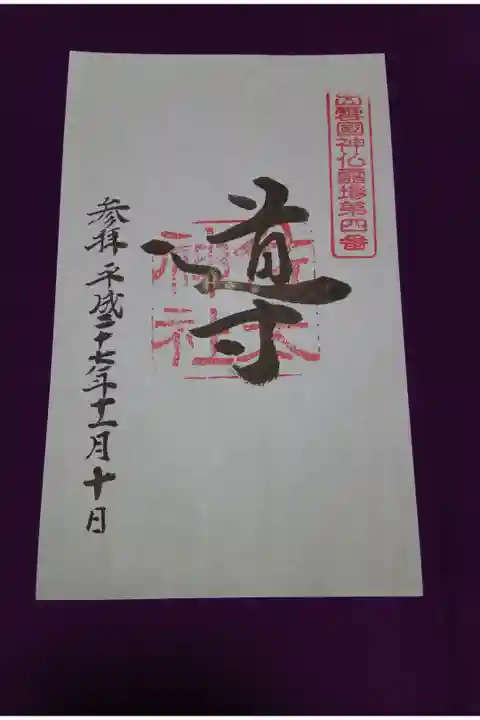 出雲國神仏霊場第四番
導
佐太
神社
参拝 平成二十七年十一月十日